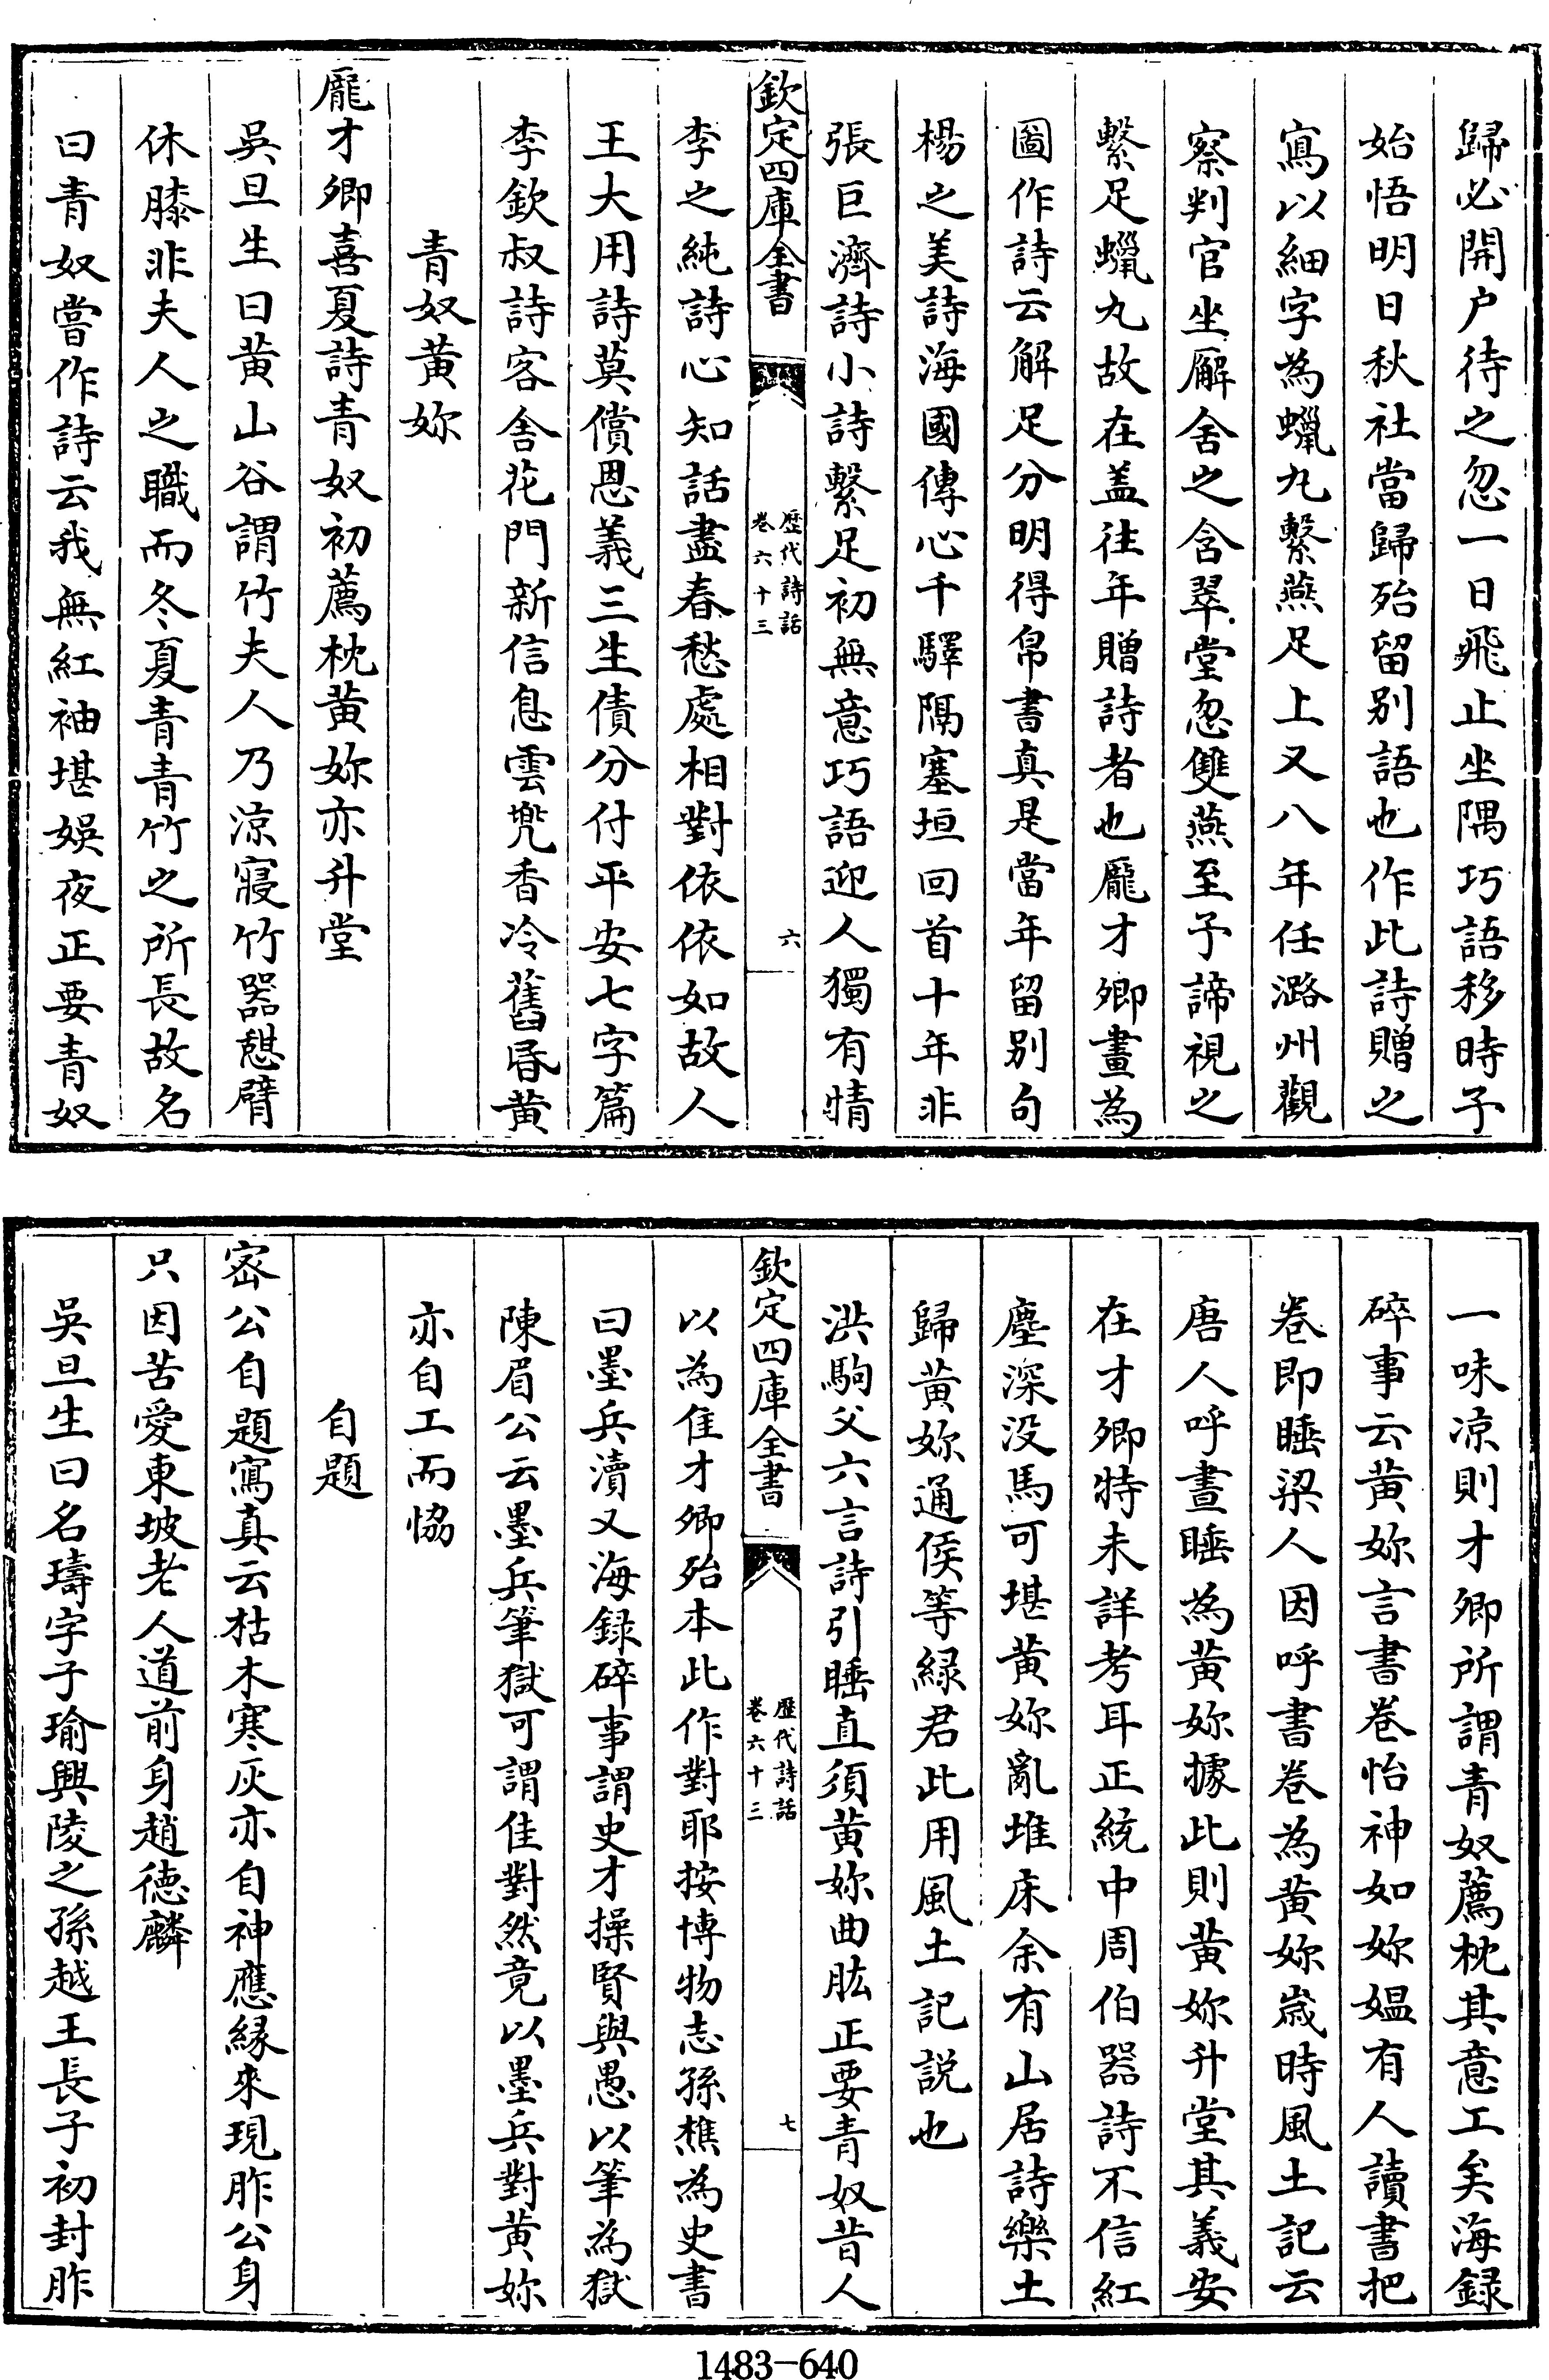 歸必開户待之忽一日飛止坐隅巧語移時予
始悟明日秋社當歸殆留别語也作此詩贈之
寫以細字為蠟丸繫燕足上又八年任潞州觀
察判官坐廨舍之含翠堂忽雙燕至予諦視之
繫足蠟丸故在蓋往年贈詩者也龎才卿畫為
圖作詩云解足分明得帛書真是當年留别句
楊之美詩海國傳心千驛隔塞垣回首十年非
張巨濟詩小詩繫足初無意巧語迎人獨有情
欽定四庫全書
歷代詩話
卷六十三
六
李之純詩心知話盡春愁處相對依依如故人
王大用詩莫償恩義三生債分付平安七字篇
李欽叔詩客舍花門新信息雲兠香冷舊昏黄
青奴黄妳
龎才卿喜夏詩青奴初薦枕黄妳亦升堂
吳旦生曰黄山谷謂竹夫人乃涼寢竹器憇臂
休膝非夫人之職而冬夏青青竹之所長故名
曰青奴嘗作詩云我無紅袖堪娛夜正要青奴
一味凉則才卿所謂青奴薦枕其意工矣海録
碎事云黄妳言書卷怡神如妳媪有人讀書把
卷即睡梁人因呼書卷為黄妳歲時風土記云
唐人呼晝睡為黄妳據此則黄妳升堂其義安
在才卿特未詳考耳正統中周伯器詩不信紅
塵深没馬可堪黄妳亂堆床余有山居詩樂土
歸黄妳通侯等緑君此用風土記説也
洪駒父六言詩引睡直須黄妳曲肱正要青奴昔人
欽定四庫全書
歷代詩話
卷六十三
七
以為隹才卿殆本此作對耶按博物志孫樵為史書
曰墨兵瀆又海録碎事謂史才操賢與愚以筆為獄
陳眉公云墨兵筆獄可謂隹對然竟以墨兵對黄妳
亦自工而恊
自題
宻公自題寫真云枯木寒灰亦自神應緣來現胙公身
只因苦愛東坡老人道前身趙徳麟
吳旦生曰名璹字子瑜興陵之孫越王長子初封胙
1483-640